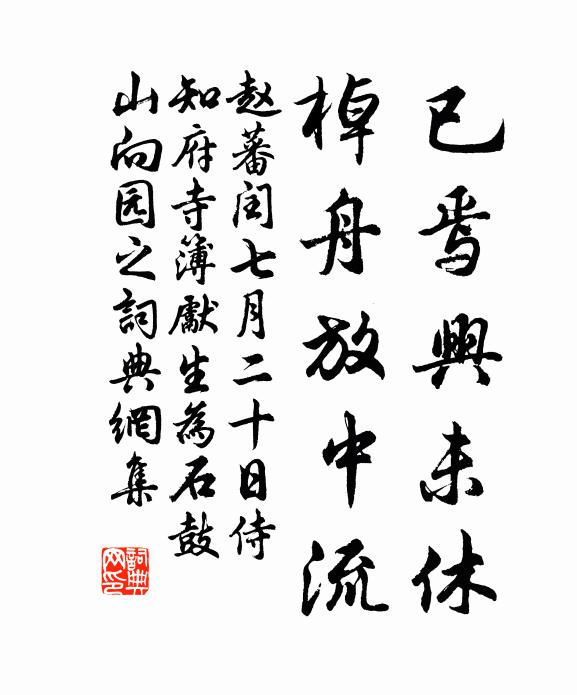 已焉興未休
棹舟放中流
赵蕃闰七月二十日侍
知府寺簿獻生為石鼓
山向园之詞典網集
詞典
网印